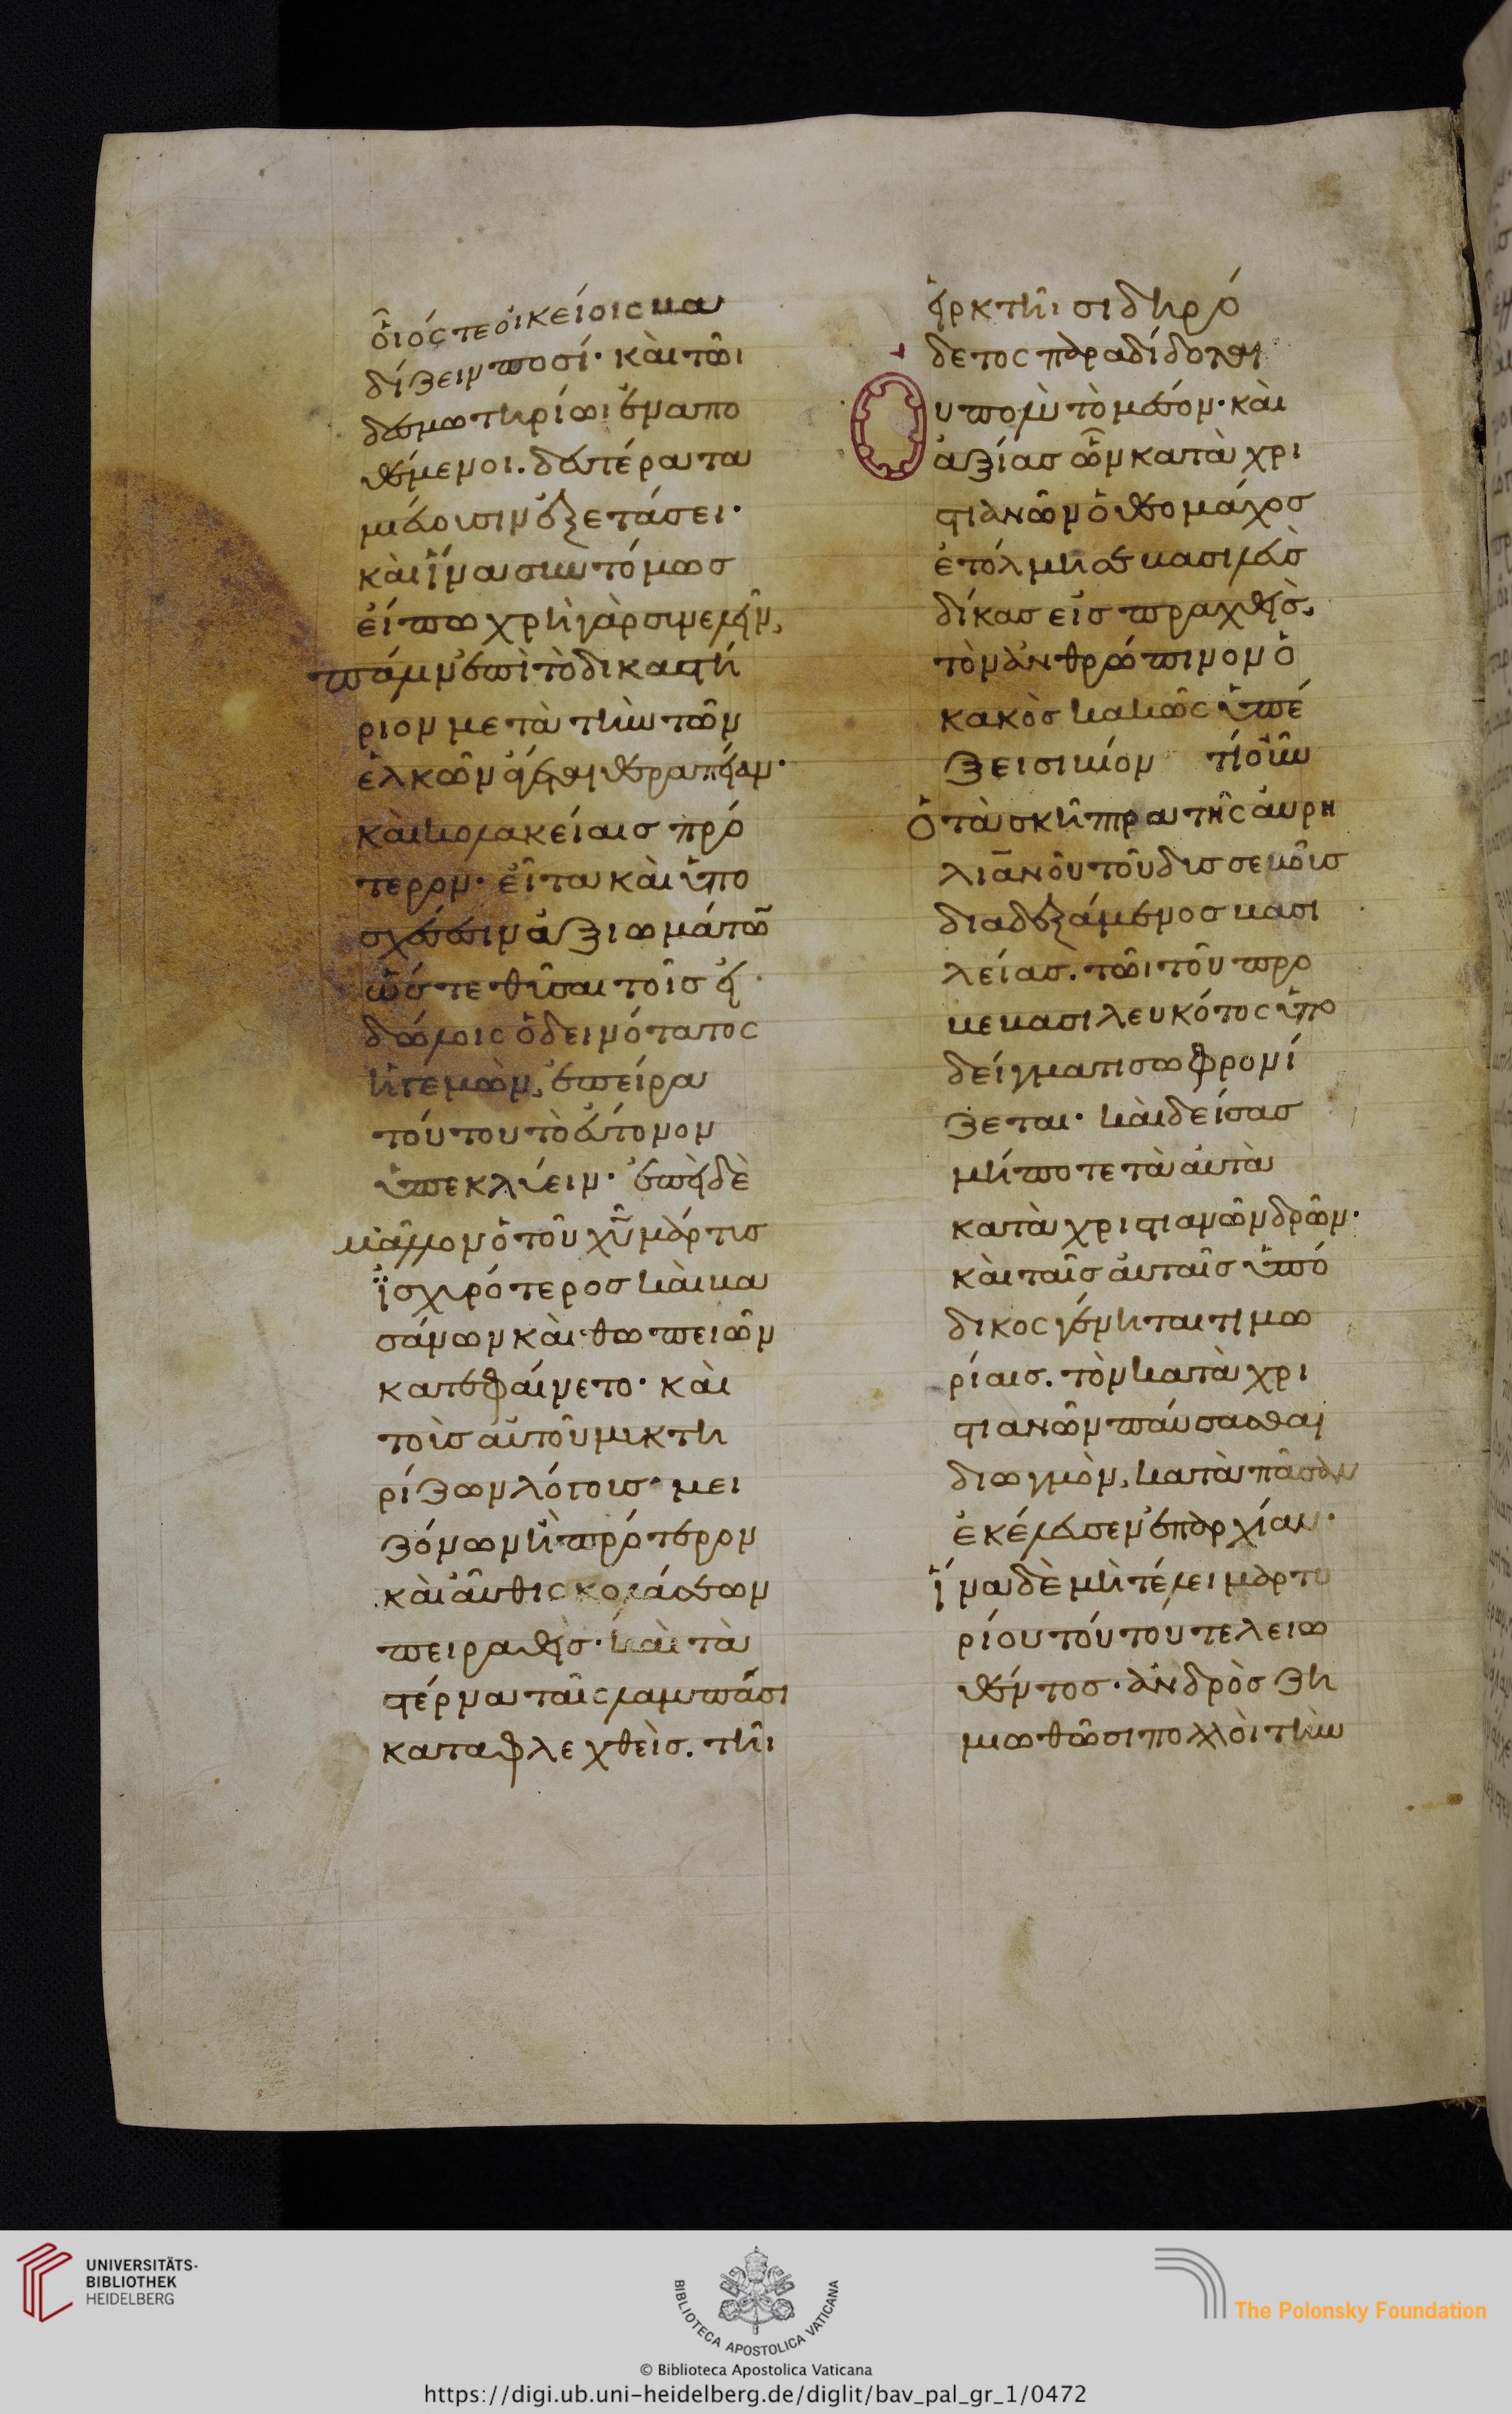 οἷός τε οἰκείοις βα
δίζειν ποσί· καὶ τῶι
δεσμωτηρίωι ἐναπο
θέμενοι. δευτέρα τα
μιεύουσιν ἐξετάσει·
καὶ ἵνα συντόμως
εἴπω χρὴ γὰρ συνελεῖν,
πάλιν ἐπὶ τὸ δικαστή
ριον μετὰ τὴν τῶν
ἑλκῶν ἄγεται θεραπείαν·
καὶ κολακείαις πρό
τερον· εἶτα καὶ ὑπο
σχέσεσιν ἀξιωμάτων
ὥστε θῦσαι τοῖς εἰ
δώλοις ὁ δεινότατος
ἡγεμὼν, ἐπείρα
τούτου τὸ εὔτονον
ὑπεκλύειν· ἐπεὶ δὲ
μᾶλλον ὁ τοῦ χυ μάρτυς
ἰσχυρότερος καὶ βα
σάνων καὶ θωπειῶν
κατεφαίνετο· καὶ
τοῖς αὐτοῦ μυκτη
ρίζων λόγοις· μει
ζόνων ἢ πρότερον
καὶ αὖθις κολάσεων
πειραθεὶς· καὶ τὰ
στέρνα ταῖς λαμπάσι
καταφλεχθεὶς. τῆι
εἱρκτῆι σιδηρό
δετος παραδίδοται
Οὕπω μὲν τὸ μέσον· καὶ
ἀξίας ὧν κατὰ χρι
στιανῶν ὁ θεομάχος
ἐτόλμησε βασιλεὺς
δίκας εἰσπραχθεὶς,
τὸν ἀνθρώπινον ὁ
κακὸς κακῶς ὑπε
ξεισι βίον τί οὖν
ὁ τὰ σκῆπτρα τῆς αὐρη
λιανοῦ τοῦ δυσσεβοῦς
διαδεξάμενος βασι
λείας. τῶι τοῦ προ
βεβασιλευκότος ὑπο
δείγματι σωφρονί
ζεται· καὶ δείσας
μήποτε τὰ αὐτὰ
κατὰ χριστιανῶν δρῶν·
καὶ ταῖς αὐταῖς ὑπό
δικος γένηται τιμω
ρίαις. τὸν κατὰ χρι
στιανῶν παύσασθαι
διωγμὸν, κατὰ πᾶσαν
ἐκέλευσεν ἐπαρχίαν·
ἵνα δὲ μὴ τέλει μαρτυ
ρίου τούτου τελειω
θέντος· ἀνδρὸς ζη
μιωθῶσι πολλοὶ τὴν
UNIVERSITÄTS-
BIBLIOTHEK
HEIDELBERG
BIBLIOTECA APOSTOLICA VATICANA
The Polonsky Foundation
© Biblioteca Apostolica Vaticana
https://digi.ub.uni-heidelberg.de/diglit/bav_pal_gr_1/0472